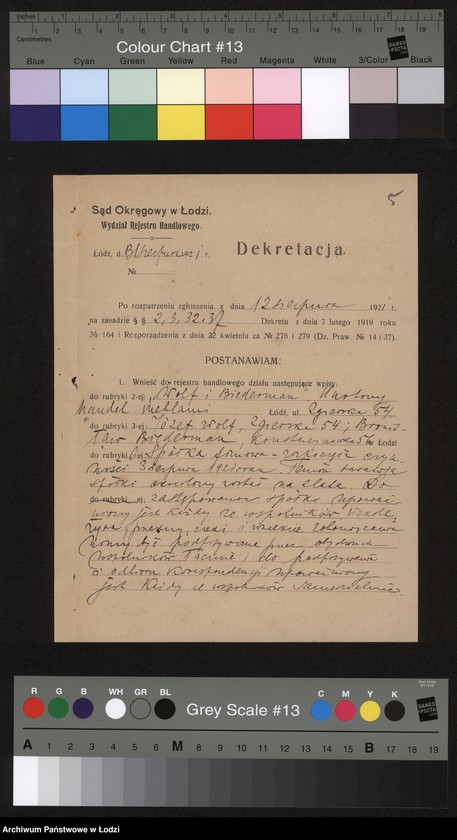 Inches 1 2 3 4 5 6 7 8
Centimetres 1 2 3 4 5 6 7 8 9 10 11 12 13 14 15 16 17 18 19
Colour Chart #13
DANES PICTA
Blue Cyan Green Yellow Red Magenta White 3/Color Black
5
Sąd Okręgowy w Łodzi.
Wydział Rejestru Handlowego.
Łódź, d. sierpnia 1921 r.
Dekretacja.
№
Po rozpatrzeniu zgłoszenia z dnia 12 sierpnia 1921 r.
na zasadzie § § 2, 3, 32, 37 Dekretu z dnia 7 lutego 1919 roku
№ 164 i Rozporządzenia z dnia 32 kwietnia za № 278 i 279 (Dz. Praw. № 14 i 37).
POSTANAWIAM:
1. Wnieść do rejestru handlowego działu następujące wpisy:
do rubryki 2-ej: „Wolf i Biederman" Hurtowy
handel meblami Łódź, ul. Zgierska 54
do rubryki 3-ej: Józef Wolf, Zgierska 54 i Broni-
sław Biederman, Konstantynowska Łódź
do rubryki 6ej: Spółka firmowa
spółki określony został na
do rubryki ej: zastępowania spółki upoważ
niony jest każdy ze wspólników. Weksle,
czeki i wszelkie zobowiązania
być podpisywane przez obydwuch
wspólników i do podpisywania
korespondencji upoważniony
jest każdy ze wspólników samodzielnie.
R G B WH GR BL
Grey Scale #13
C M Y K
DANES PICTA
A 1 2 3 4 5 6 M 8 9 10 11 12 13 14 15 B 17 18 19
Archiwum Państwowe w Łodzi